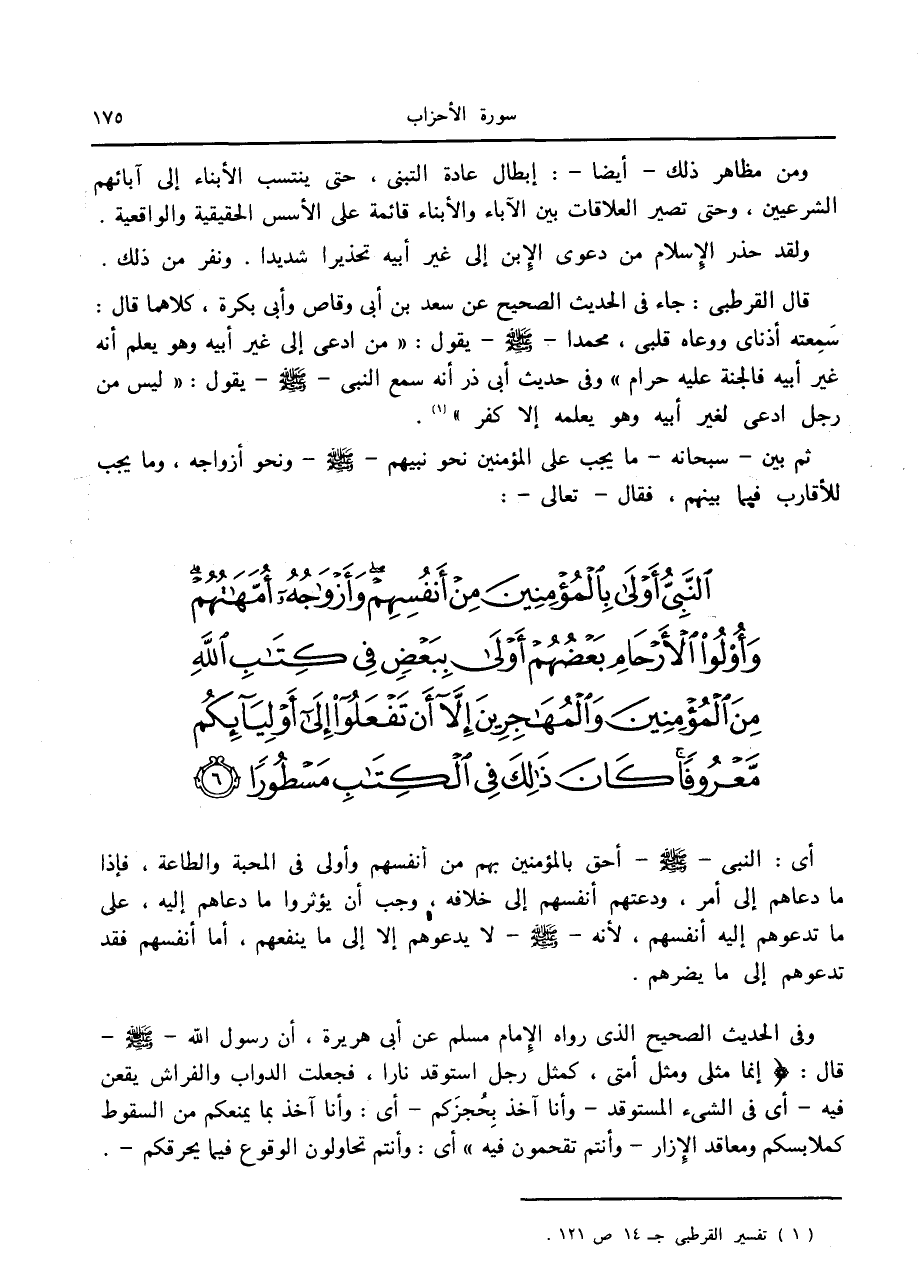 سورة الأحزاب ١٧٥
ومن مظاهر ذلك – أيضا – : إبطال عادة التبنى ، حتى ينتسب الأبناء إلى آبائهم
الشرعيين ، وحتى تصير العلاقات بين الآباء والأبناء قائمة على الأسس الحقيقية والواقعية .
ولقد حذر الإسلام من دعوى الإبن إلى غير أبيه تحذيرا شديدا . ونفر من ذلك .
قال القرطبى : جاء فى الحديث الصحيح عن سعد بن أبى وقاص وأبى بكرة ، كلاهما قال :
سَمِعته أذناى ووعاه قلبى ، محمدا – ﷺ – يقول : « من ادعى إلى غير أبيه وهو يعلم أنه
غير أبيه فالجنة عليه حرام » وفى حديث أبى ذر أنه سمع النبى – ﷺ – يقول : « ليس من
رجل ادعى لغير أبيه وهو يعلمه إلا كفر » (١) .
ثم بين – سبحانه – ما يجب على المؤمنين نحو نبيهم – ﷺ – ونحو أزواجه ، وما يجب
للأقارب فيما بينهم ، فقال – تعالى – :
ٱلنَّبِىُّ أَوْلَىٰ بِٱلْمُؤْمِنِينَ مِنْ أَنفُسِهِمْ ۖ وَأَزْوَٰجُهُۥٓ أُمَّهَـٰتُهُمْ ۗ
وَأُو۟لُوا۟ ٱلْأَرْحَامِ بَعْضُهُمْ أَوْلَىٰ بِبَعْضٍ فِى كِتَـٰبِ ٱللَّهِ
مِنَ ٱلْمُؤْمِنِينَ وَٱلْمُهَـٰجِرِينَ إِلَّآ أَن تَفْعَلُوٓا۟ إِلَىٰٓ أَوْلِيَآئِكُم
مَّعْرُوفًا ۚ كَانَ ذَٰلِكَ فِى ٱلْكِتَـٰبِ مَسْطُورًا ٦
أى : النبى – ﷺ – أحق بالمؤمنين بهم من أنفسهم وأولى فى المحبة والطاعة ، فإذا
ما دعاهم إلى أمر ، ودعتهم أنفسهم إلى خلافه ، وجب أن يؤثروا ما دعاهم إليه ، على
ما تدعوهم إليه أنفسهم ، لأنه – ﷺ – لا يدعوهم إلا إلى ما ينفعهم ، أما أنفسهم فقد
تدعوهم إلى ما يضرهم .
وفى الحديث الصحيح الذى رواه الإمام مسلم عن أبى هريرة ، أن رسول الله – ﷺ –
قال : « إنما مثلى ومثل أمتى ، كمثل رجل استوقد نارا ، فجعلت الدواب والفراش يقعن
فيه – أى فى الشىء المستوقد – وأنا آخذ بِحُجزَكم – أى : وأنا آخذ بما يمنعكم من السقوط
كملابسكم ومعاقد الإزار – وأنتم تقحمون فيه » أى : وأنتم تحاولون الوقوع فيما يحرقكم – .
( ١ ) تفسير القرطبى جـ ١٤ ص ١٢١ .